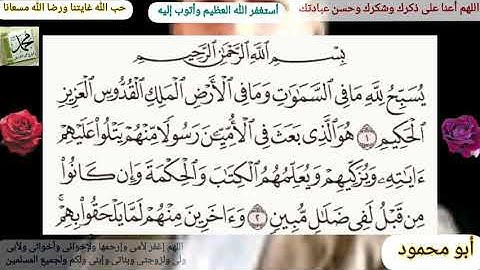 اللهم أعنا على ذكرك وشكرك وحسن عبادتك
أستغفر الله العظيم وأتوب إليه
حب الله غايتنا ورضا الله مسعانا
بِسْمِ ٱللَّهِ ٱلرَّحْمَٰنِ ٱلرَّحِيمِ
يُسَبِّحُ لِلَّهِ مَا فِى ٱلسَّمَٰوَٰتِ وَمَا فِى ٱلْأَرْضِ ٱلْمَلِكِ ٱلْقُدُّوسِ ٱلْعَزِيزِ
ٱلْحَكِيمِ ١ هُوَ ٱلَّذِى بَعَثَ فِى ٱلْأُمِّيِّـۧنَ رَسُولًا مِّنْهُمْ يَتْلُوا۟ عَلَيْهِمْ
ءَايَٰتِهِۦ وَيُزَكِّيهِمْ وَيُعَلِّمُهُمُ ٱلْكِتَٰبَ وَٱلْحِكْمَةَ وَإِن كَانُوا۟
مِن قَبْلُ لَفِى ضَلَٰلٍ مُّبِينٍ ٢ وَءَاخَرِينَ مِنْهُمْ لَمَّا يَلْحَقُوا۟ بِهِمْ ۚ
أبو محمود
اللهم إغفر لأمي وإرحمها ولإخواني وأخواتي ولأبي
ولي ولزوجتي وبناتي وإبني ولكم ولجميع المسلمين